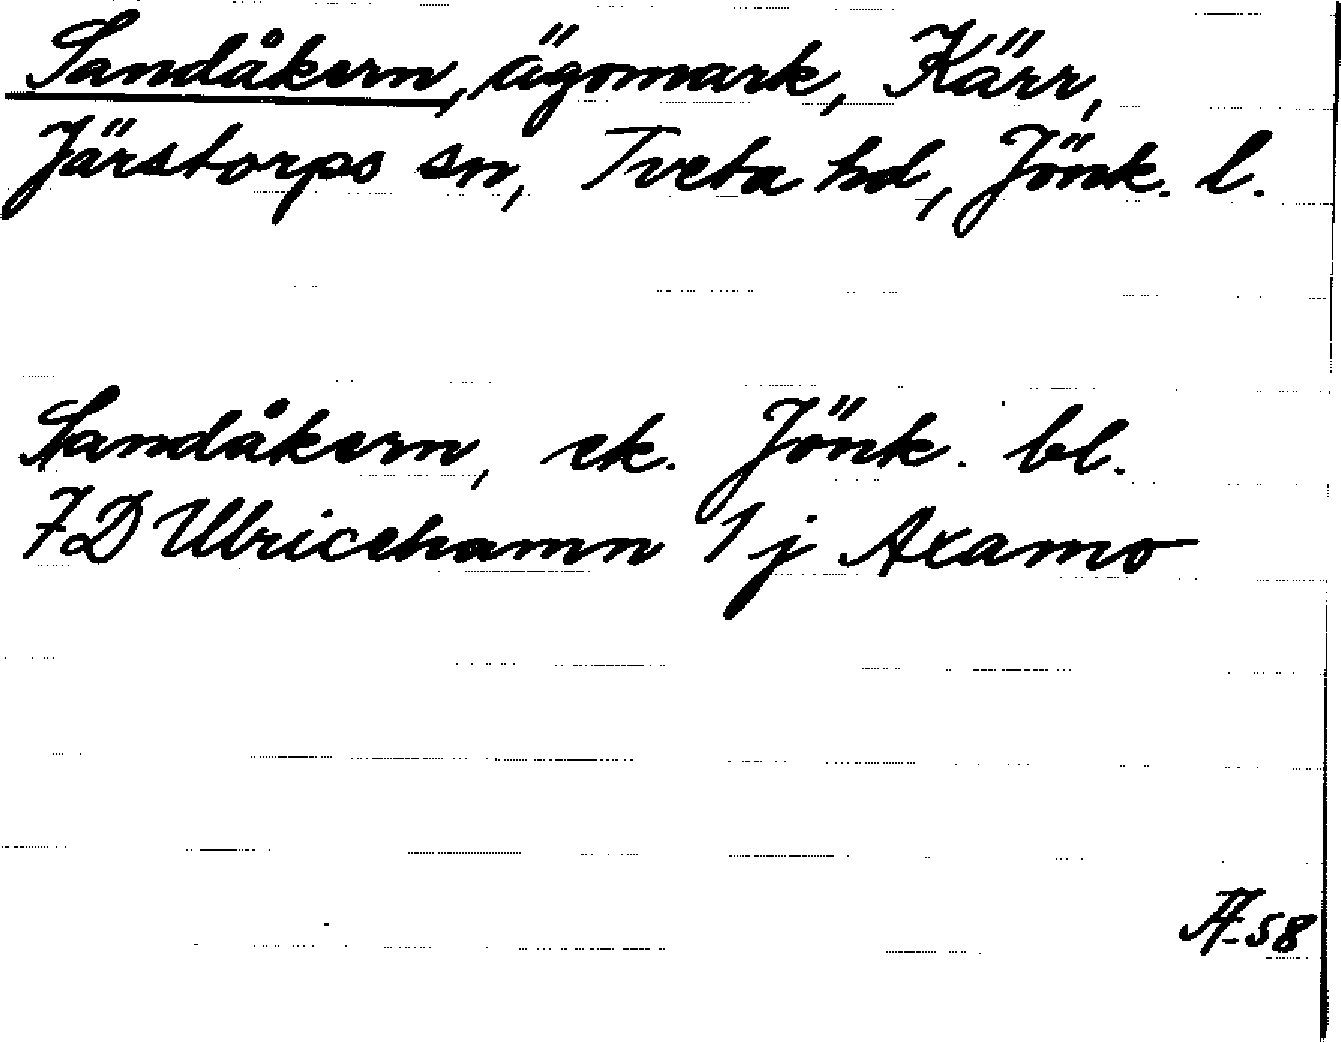 Sandåkern, ägomark, Kärr,
Järstorps sn, Tveta hd, Jönk. l.
Sandåkern, ek. Jönk. bl.
7D Ulricehamn 1 j Axamo
ÅF-58